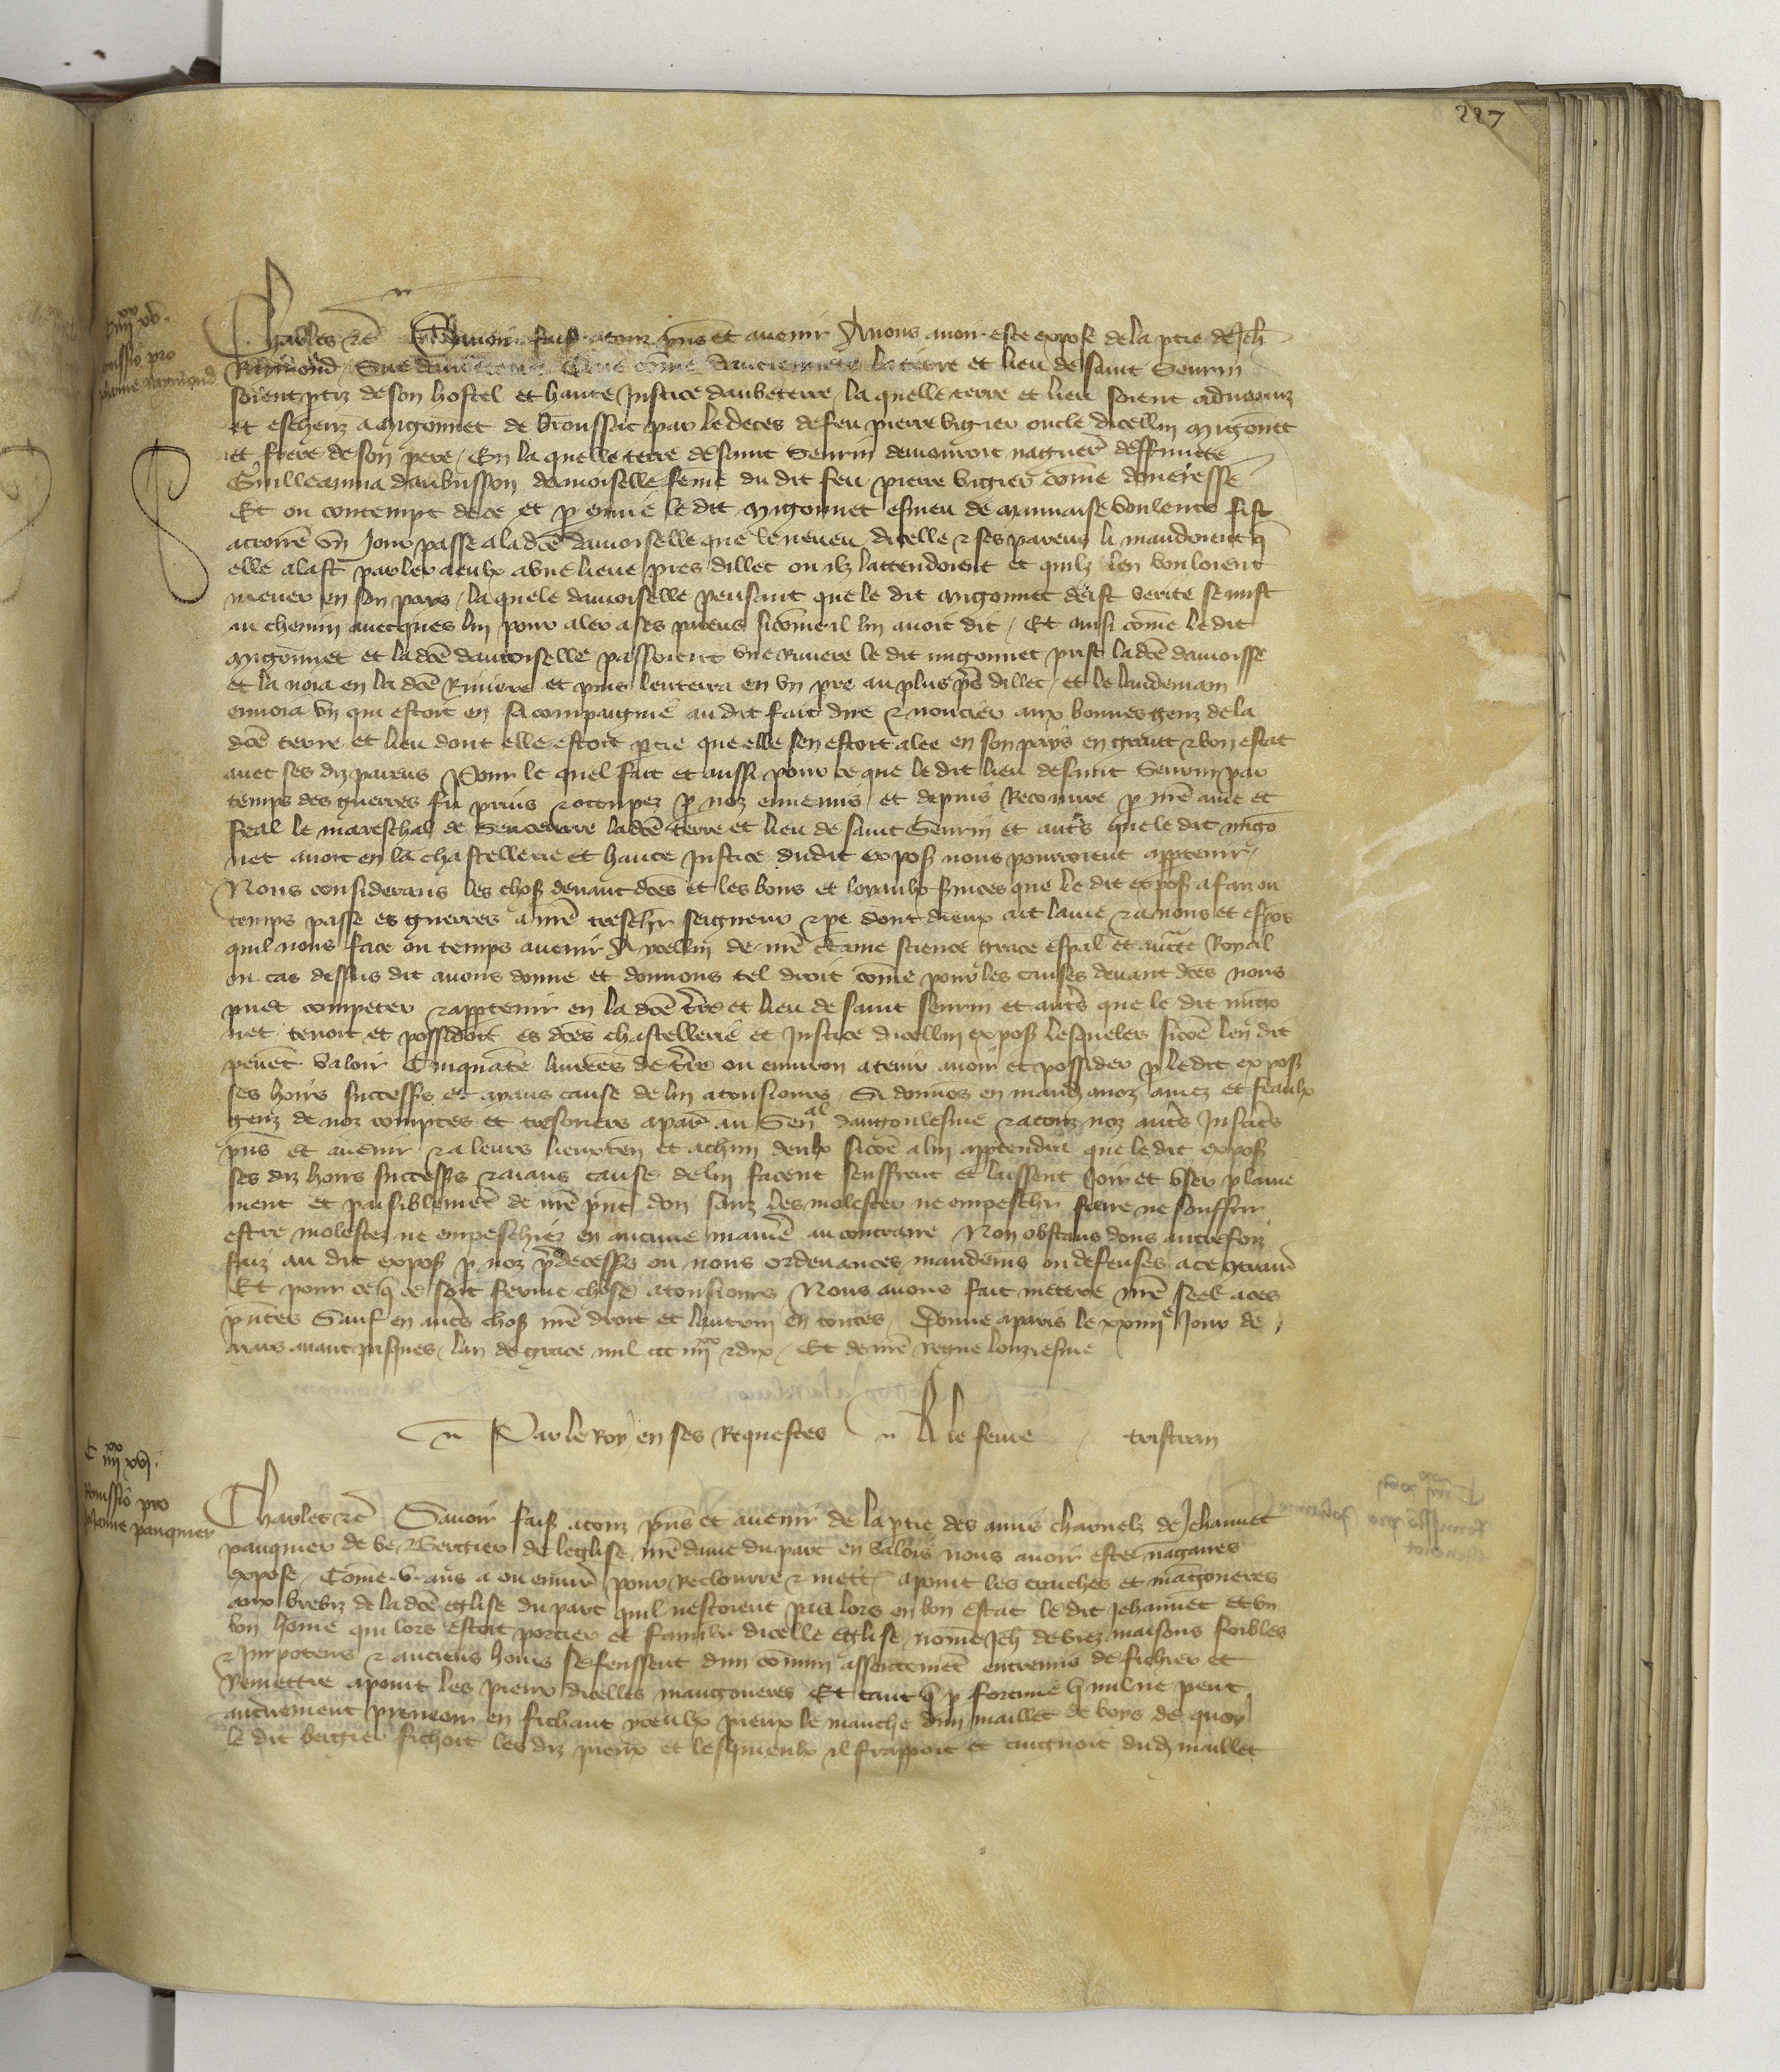 227
iiii xx xv.
Remissio pro
Johanne Raymond
Charles etc̃ Savoir faisõs atouz p̃ns et avenir Anous avoir este expose de la p̃tie de Jeh̃
Raymond Sire daubeterre Que cõme danciennete la terre et lieu de saint Sevrin
soient p̃tiz de son hostel et haute Justice daubeterre / la quelle terre et lieu soient advenuz
et escheuz a migonnet de Broussac par le deces de feu pierre vigier oncle dicellui migonnet
et frere de son pere / En la quelle terre de saint Sevrin demouroit naguer̃ deffuncte
Guilleamua daubusson damoiselle feme du dit feu pierre vigier cõme doueresse
Et ou contempt de ce et p̃ envie le dit migonnet esmeu de mauvaise voulente fist
acroire vn Jour passe a la dc̃e damoiselle que le neveu dicelle et ses parens li mandoient q̃
elle alast parler a eulx a vne lieue pres dillec ou ilz lattendoient et quilz len vouloient
mener en son pays / la quele damoiselle pensant que le dit migonnet deist verite se mist
au chemin avecques lui pour aler a ses parens sicõme il lui avoit dit / Et ainsi cõme le dit
migonnet et la dc̃e damoiselle passoient vne Riviere le dit migonnet prist la dc̃e damoiss̃e
et la noia en la dc̃e Riviere et puis lenterra en vn pre au plus p̃s dillec / et le landemain
envoia vn qui estoit en sa compaignie au dit fait dire et noncier aux bonnes genz de la
dc̃e terre et lieu dont elle estoit p̃tie que elle sen estoit alee en son pays en grant et bon estat
avec ses diz parens Pour le quel fait et aussi pour ce que le dit lieu de saint Sevrin par
temps des guerres fu prins et occupez p̃ noz ennemis / et depuis Recouvre p̃ nr̃e ame et
feal le mareschal de Sencerre la dc̃e terre et lieu de saint Sevrin et autr̃s que le dit migo
net avoit en la chastellerie et haute Justice dudit expos̃ nous pourroient app̃tenir
Nous considerans les chos̃ devant dc̃es et les bons et loyaulx s̃vices que le dit expos̃ a faiz ou
temps passe es guerres a nr̃e treschr̃ seigneur et p̃e dont dieux ait lame et a nous et esp̃os
quil nous face ou temps avenir A ycellui de nr̃e c̃taine science grace esp̃al et auct̃e Royal
ou cas dessus dit avons donne et donnons tel droit cõme pour les causes devant dc̃es nous
puet competer et app̃tenir en la dc̃e tr̃e et lieu de saint sevrin et autr̃s que le dit migo
net tenoit et possidoit es dc̃es chastellerie et Justice dicellui expos̃ lesqueles sicõe len dit
peuẽt valoir Cinquãte livrees de tr̃e ou environ a tenir avoir et possider p̃ le dit expos̃
ses hoirs success̃rs et ayans cause de lui a tousiours Si donnõs en mand̃ a noz amez et feaulx
genz de noz comptes et tresoriers a paris̃ au Sen̄al dangoulesme et a touz noz autr̃s Justic̃s
p̃ns et avenir et a leurs lieuxten̄ et a chũn deulx sicõe a lui app̃tendra que le dit expos̃
ses diz hoirs success̃rs et aians cause de lui facent seuffrent et laissent Joir et vser plaine
ment et paisiblemẽt de nr̃e p̃nt don sanz les molester ne empesch̃r faire ne souffrir
estre molestez ne empeschiez en aucune manie͂ au contraire Non obstans dons autrefoiz
faiz au dit expos̃ p̃ noz p̃decess̃rs ou nous ordenances mandem̃s ou defenses a ce 9trair̃
Et pour ce q̃ ce soit ferme chose a tousiours Nous avons fait mettre nr̃e seel a ces
p̃ntes Sauf en autr̃s chos̃ nr̃e droit et lautrui en toutes / Donne a paris le xxiiiie Jour de
mars avant pasques lan de grace mil ccc iiii xx et dix / Et de nr̃e Regne lonziesme
Par le Roy en ses Requestes A le fevre tristran
C iiii xx xvi.
Remissio pro
Johanne pauquier
Charles etc̃ Savoir faisõs a touz p̃ns et avenir de la p̃tie des amis charnelz de Jehannet
pauquier de ve Bergier de leglise nr̃e dame du parc en valois nous avoir este nagaires
expose Cõme .v. ans a ou envir̃ pour Reclourre et mett̃ a point les cruches et mãgoneres
aux brebiz de la dc̃e eglise du parc quil nestoient pas lors en bon estat le dit Jehannet et vn
bon hõme qui lors estoit portier et famil̃r dicelle eglise nõme Jeh̃ de viez maisons foibles
et Impotens et anciens hõms se feussent dun cõmun assentemẽt entremis de fichier et
Remettre a point les pieux dicelles mangoneres Et tant q̃ p̃ fortune q̃ nul ne peut
autrement preveoir en fichant yceulx pieux le manche dun maillet de boys de quoy
le dit bergier fichoit les diz pieux et lesquieulx il frappoit et cuignoit dud̃ maillet